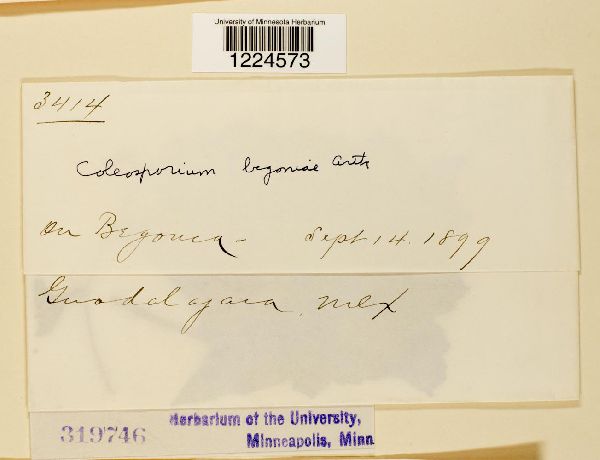 University of Minnesota Herbarium
1224573
3414
Coleosporium begoniae Arth
On Begonia - Sept 14. 1899
Guadalajara, Mex
319746 Herbarium of the University,
Minneapolis, Minn